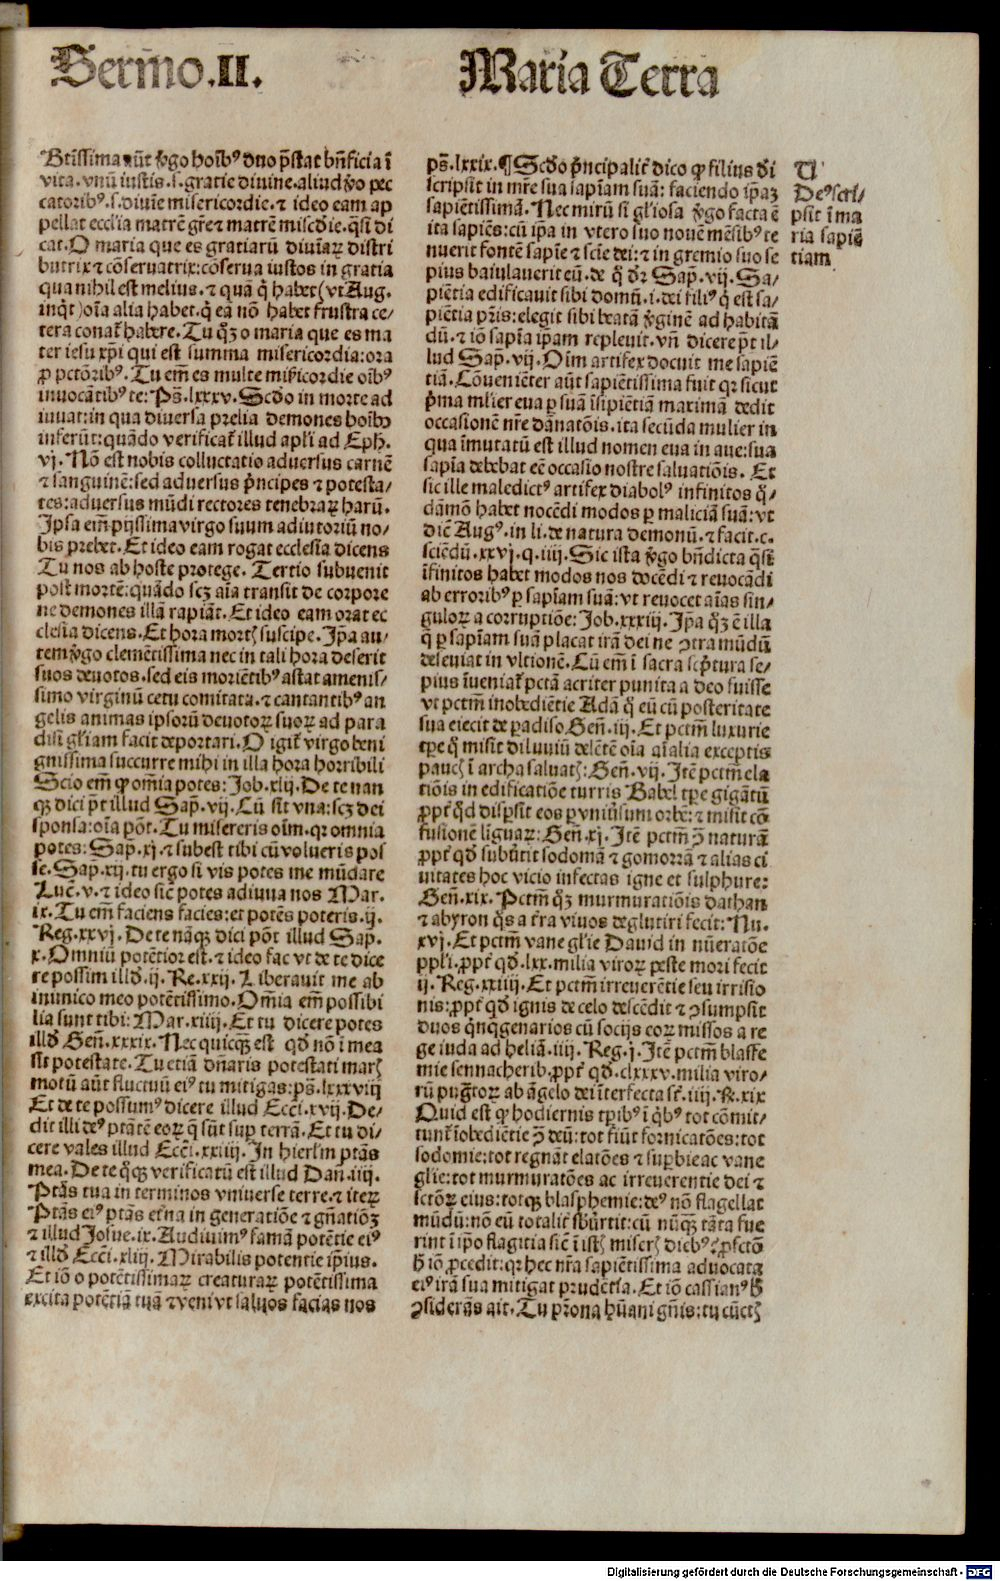 Sermo.II.
Maria Terra
Btīssima aūt v̄go hoībꝰ duo p̄stat bn̄ficia ī
vita.vnū iustis.s.gratie diuine.aliud v̄o pec
catoribꝰ.s.diuīe misericordie.⁊ ideo eam ap
pellat ecclīa matrē gr̄e ⁊ matrē miscd̄ie.qͣsi di
cat.O maria que es gratiarū diuīaꝝ distri
butrix ⁊ cōseruatrix:cōserua iustos in gratia
qua nihil est melius.⁊ quā q̇ habet (vt Aug.
inqͥt) oīa alia habet.q̇ eā nō habet frustra ce⸗
tera conat̄ habere.Tu qͦꝫ o maria que es ma
ter iesu xp̄i qui est summa misericordia:ora
ꝓ pctōribꝰ.Tu em̄ es multe mis̄icordie oībꝰ
inuocātibꝰ te:Ps̄.lxxxv.Scd̄o in morte ad
iuuat:in qua diuersa prelia demones hoībꝰ
inferūt:quādo verificat̄ illud apl̄i ad Eph.
vj.Nō est nobis colluctatio aduersus carnē
⁊ sanguinē:sed aduersus p̄ncipes ⁊ potesta⸗
tes:aduersus mūdi rectores tenebraꝝ harū.
Ipsa em̄ pijssima virgo suum adiutoriū no⸗
bis prebet.Et ideo eam rogat ecclesīa dicens
Tu nos ab hoste protege. Tertio subuenit
post mortē:quādo scꝫ aīa transit de corpore
ne demones illā rapiāt.Et ideo eam orat ec
clesīa dicens.Et hora mortꝭ suscipe.Ip̄a au⸗
tem v̄go clemētissima nec in tali hora deserit
suos deuotos.sed eis moriētibꝰ astat amenis⸗
simo virginū cetu comitata.⁊ cantantibꝰ an
gelis animas ipsorū deuotoꝝ suoꝝ ad para
disi gl̄iam facit deportari.O igit̄ virgo beni
gnissima succurre mihi in illa hora horribili
Scio em̄ ꝙ om̄ia potes:Job.xlij.De te nan
qꝫ dici p̄t illud Sap̄.vij.Cū sit vna:scꝫ dei
sponsa:oīa pōt.Tu misereris oīm.qꝛ omnia
potes:Sap̄.xj.⁊ subest tibi cū volueris pos
se.Sap̄.xij.tu ergo si vis potes me mūdare
Luc̄.v.⁊ ideo sic̄ potes adiuua nos Mar.
ix.Tu em̄ faciens facies:et potēs poteris.ij.
Reg.xxvj.De te nāqꝫ dici pōt illud Sap.
x.Omniū potētior est.⁊ ideo fac vt de te dice
re possim illd̄.ij.Re.xxij.Liberauit me ab
inimico meo potētissimo.Om̄ia em̄ possibi
lia sunt tibi:Mar.xiiij.Et tu dicere potes
illd̄ Gen̄.xxxix.Nec quicqꝫ est qd̄ nō ī mea
sit potestate.Tu etiā dn̄aris potestati marꝭ
motū aūt fluctuū eiꝰ tu mitigas:ps̄.lxxxviij
Et de te possumꝰ dicere illud Ecc̄i.xvij.De⸗
dit illi deꝰ ptātē eoꝝ q̄ sūt sup̄ terrā.Et tu di⸗
cere vales illud Ecc̄i.xxiiij.In hierl̄m ptās
mea.De te qͦqꝫ verificatū est illud Dan̄.iiij.
Ptās tua in terminos vniuerse terre.⁊ iteꝝ
Ptās eiꝰ ptās et̄na in generatiōe ⁊ gn̄atiōꝫ
⁊ illud Josue.ix.Audiuimꝰ famā potētie eiꝰ
⁊ illd̄ Ecc̄i.xliij.Mirabilis potentie ip̄ius.
Et iō o potētissimaꝝ creaturaꝝ potētissima
excita potētiā tuā ⁊ veni vt saluos facias nos
ps̄.lxxix.¶Scd̄o p̄ncipalit̄ dico ꝙ filius d̄i
scripsit in mr̄e sua sapīam suā: faciendo ip̄aꝫ
sapiētissimā.Nec mirū si gl̄iosa v̄go facta ē
ita sapiēs:cū ip̄a in vtero suo nouē mēsibꝰ te
nuerit fontē sapīe ⁊ scīe dei:⁊ in gremio suo se
pius baiulauerit eū.de q̊ dr̄ Sap̄.vij.Sa⸗
piētia edificauit sibi domū.i.dei filiꝰ q̇ est sa⸗
piētia pr̄is:elegit sibi beatā v̄ginē ad habitā
dū.⁊ iō sapīa ip̄am repleuit.vn̄ dicere p̄t il⸗
lud Sap̄.vij.Oīm artifex docuit me sapiē
tiā.Cōueniēter aūt sapiētissima fuit qꝛ sicut
p̄ma ml̄ier eua ꝑ suā īsipiētiā maximā dedit
occasionē nr̄e dānatōis.ita secūda mulier in
qua īmutatū est illud nomen eua in aue:sua
sapīa debebat eē occasio nostre saluatiōis. Et
sic ille maledictꝰ artifex diabolꝰ infinitos q̄⸗
dāmō habet nocēdi modos ꝑ maliciā suā:vt
dic̄ Augꝰ.in li.de natura demonū.⁊ facit.c.
sciēdū.xxvj.q.iiij.Sic ista v̄go bn̄dicta qͣsi
īfinitos habet modos nos docēdi ⁊ reuocādi
ab erroribꝰ ꝑ sapīam suā:vt reuocet aīas sin⸗
guloꝝ a corruptiōe:Job.xxxiij.Ip̄a qͦꝫ ē illa
q̄ ꝑ sapīam suā placat irā dei ne ꝯtra mūdū
deseuiat in vltionē.Cū em̄ ī sacra sc̄ptura se⸗
pius īueniat̄ pctā acriter punita a deo fuisse
vt pctm̄ inobediētie Adā q̇ eū cū posteritate
sua eiecit de paradiso Gen̄.iij.Et pctm̄ luxurie
tꝑe q̊ misit diluuiū delētē oīa aīalia exceptis
paucꝭ ī archa saluatꝭ:Gen̄.vij.Itē pctm̄ ela
tiōis in edificatiōe turris Babel tꝑe gigātū
ꝓpt̄ qd̄ disꝑsit eos ꝑ vniūsum orbē:⁊ misit cō
fusionē līguaꝝ:Gen̄.xj.Itē pctm̄ ꝯ̄ naturā
ꝓpt̄ qd̄ subūtit sodomā ⁊ gomorrā ⁊ alias ci
uitates hoc vicio infectas igne et sulphure:
Gen̄.xix.Pctm̄ qͦꝫ murmuratiōis dathan
⁊ abyron q̊s a t̄ra viuos deglutiri fecit:Nu.
xvj.Et pctm̄ vane gl̄ie Dauid in nūeratōe
ppl̄i.ꝓpt̄ qd̄.lxx.milia viroꝝ peste mori fecit
ij.Reg.xxiiij.Et pctm̄ irreuerētie seu irrisio
nis:ꝓpt̄ qd̄ ignis de celo descēdit ⁊ ꝯsumpsit
duos qͥnqͣgenarios cū socijs eoꝝ missos a re
ge iuda ad heliā.iiij.Reg.j.Itē pctm̄ blasfe
mie sennacherib.ꝓpt̄ qd̄.clxxxv.milia viro⸗
rū pug̅toꝝ ab āgelo dei īterfecta st̄.iiij.R.xix
Quid est ꝙ hodiernis tꝑibꝰ ī qͥbꝰ tot cōmit⸗
tunt̄ īobediētie ꝯ̄ deū:tot fiūt fornicatōes:tot
sodomie:tot regnāt elatōes ⁊ suꝑbie ac vane
glie:tot murmuratōes ac irreuerentie dei ⁊
sctōꝝ eius:totqꝫ blasphemie:deꝰ nō flagellat
mūdū:nō eū totalit̄ sbūrtit:cū nūqꝫ tāta fue
rint ī ip̄o flagitia sic̄ ī istꝭ miserꝭ diebꝰ:ꝓfctō
h̄ iō ꝓcedit:qꝛ hec nr̄a sapiētissima aduocata
eiꝰ irā sua mitigat prudētia.Et iō cassianꝰ h̄
ꝯsiderās ait.Tu pr̄ona hūani gn̄is:tu cūctꝭ
V
Deꝰ scri⸗
psit ī ma
ria sapiē
tiam
Digitalisierung gefördert durch die Deutsche Forschungsgemeinschaft - DFG